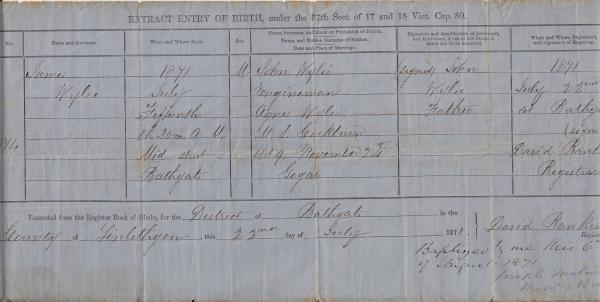 EXTRACT ENTRY OF BIRTH, under the 37th Sect. of 17 and 18 Vict. Cap. 80.
No. Name and Surname. When and Where Born. Sex. Name, Surname, and Rank or Profession of Father. Name, and Maiden Surname of Mother. Date and Place of Marriage. Signature and Qualification of Informant, and Residence, if out of the House in which the Birth occurred. When and Where Registered, and Signature of Registrar.
James 1871 M John Wylie (signed) John 1871
Wylie July Engineman Wylie July 22nd
Fifteenth Agnes Wylie Father at Bathg
8h. 30m. A M M. S. Cockburn (signe
Mid street November David Rank
Bathgate Gogar Registrar
Extracted from the Register Book of Births, for the District of Bathgate in the
County of Linlithgow, this 22nd day of July 1871 David Rankin Registr
Baptised by me this 6th
of August 1871
Joseph